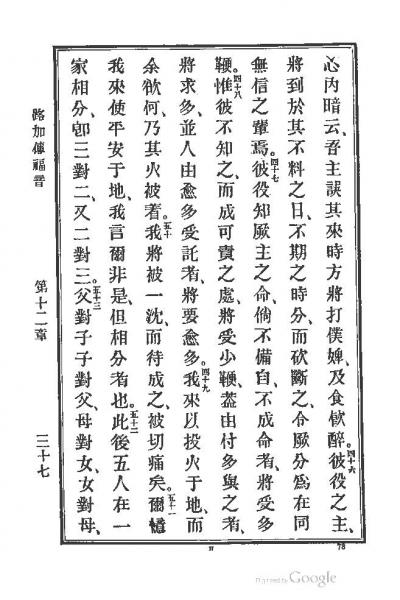 心內暗云、吾主誤其來時方將打僕婢、及食飲醉。四十六彼役之主、
將到於其不料之日、不期之時分、而砍斷之、令厥分爲在同
無信之輩焉。四十七彼役知厥主之命、倘不備自、不成命者、將受多
鞭。四十八惟彼不知之、而成可責之處、將受少鞭、蓋由付多與之者、
將求多、並人由愈多受託者、將要愈多。四十九我來以投火于地、而
余欲何、乃其火被着。五十我將被一沈、而待成之、被切痛矣。五十一爾憶
我來使平安于地、我言爾非是、但相分者也。五十二此後五人在一
家相分、卽三對二、又二對三。五十三父對子子對父、母對女、女對母、
路加傳福音
第十二章
三十七
78
Digitized by Google